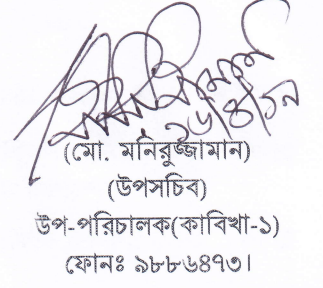 ১৬/৪/১৯
(মো. মনিরুজ্জামান)
(উপসচিব)
উপ-পরিচালক(কাবিখা-১)
ফোনঃ ৯৮৮৬৪৭৩।